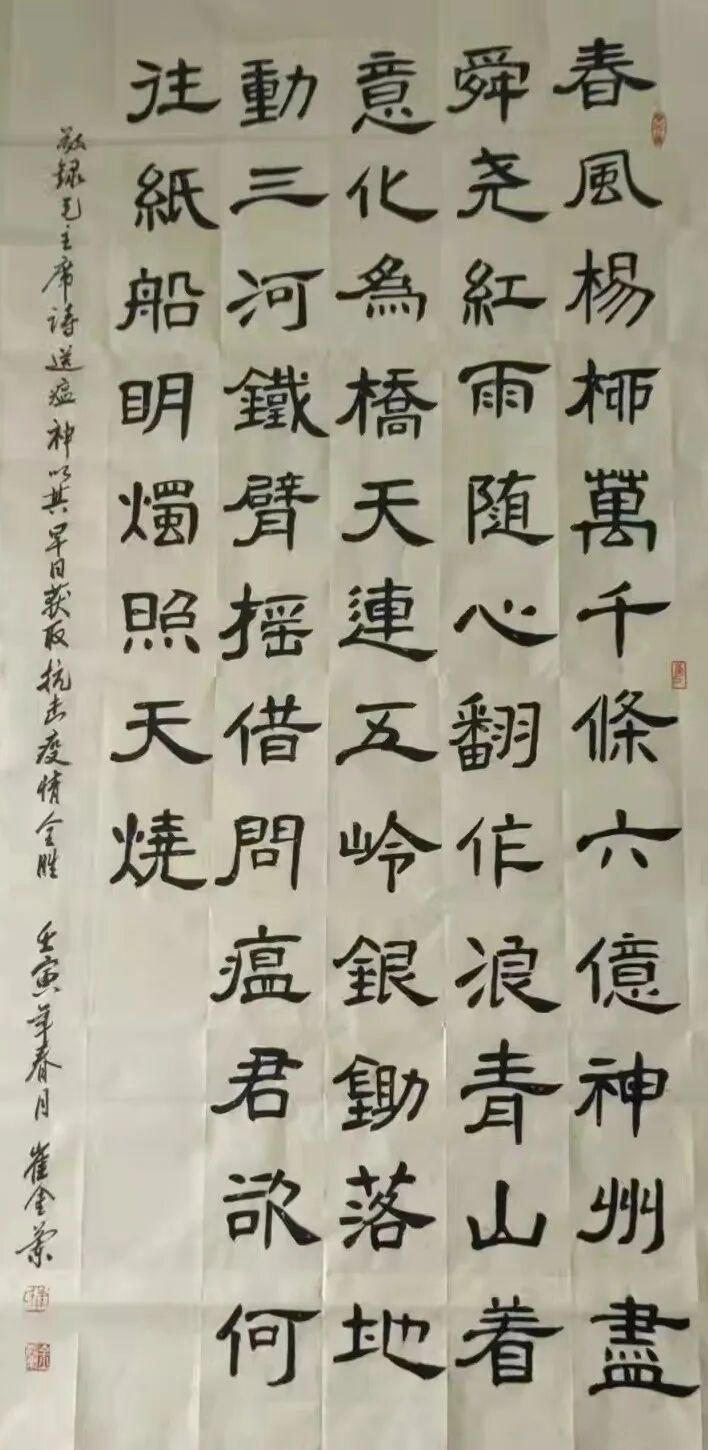 春風楊柳萬千條六億神州盡
舜尧紅雨随心翻作浪青山着
意化為橋天連五岭銀鋤落地
動三河鐵臂摇借問瘟君欲何
往紙船明燭照天燒
敬録毛主席诗送瘟神以其早日获取抗击疫情全胜 壬寅年春月 崔金兰